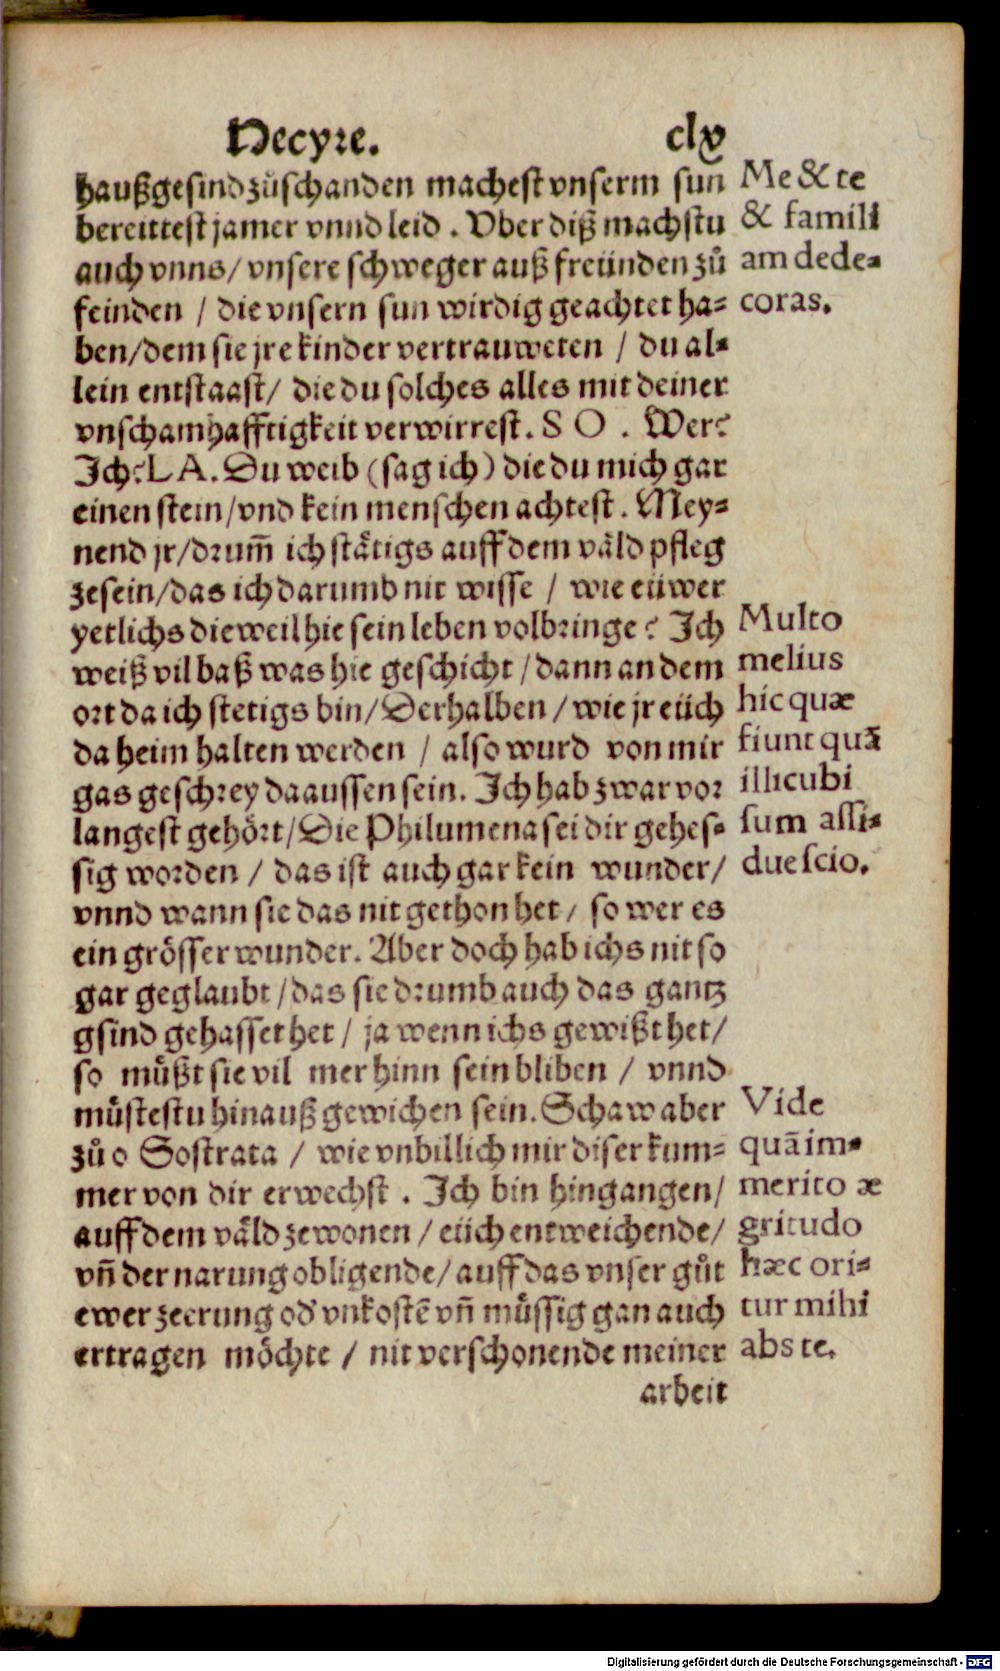 Hecyre. clx
haußgesind zůschanden machest vnserm sun
bereittest jamer vnnd leid . Vber diß machstu
auch vnns/ vnsere schweger auß freünden zů
feinden / die vnsern sun wirdig geachtet ha⸗
ben/dem sie jre kinder vertrauweten / du al⸗
lein entstaast/ die du solches alles mit deiner
vnschamhafftigkeit verwirrest. S O . Wer?
Ich? L A. Du weib (sag ich) die du mich gar
einen stein/vnd kein menschen achtest. Mey⸗
nend jr/drum̃ ich stätigs auff dem väld pfleg
zesein/das ich darumb nit wisse / wie eüwer
yetlichs dieweil hie sein leben volbringe? Ich
weiß vil baß was hie geschicht/dann an dem
ort da ich stetigs bin/Derhalben/wie jr eüch
da heim halten werden / also wurd von mir
gas geschrey daaussen sein. Ich hab zwar vor
langest gehört/Die Philumena sei dir gehes⸗
sig worden / das ist auch gar kein wunder/
vnnd wann sie das nit gethon het/ so wer es
ein grösser wunder. Aber doch hab ichs nit so
gar geglaubt/das sie drumb auch das gantz
gsind gehasset het/ ja wenn ichs gewißt het/
so müßt sie vil mer hinn sein bliben / vnnd
müstestu hinauß gewichen sein. Schaw aber
zů o Sostrata / wie vnbillich mir diser kum⸗
mer von dir erwechst . Ich bin hingangen/
auff dem väld zewonen/ eüch entweichende/
vñ der narung obligende/ auff das vnser gůt
ewer zeerung od' vnkostē vñ müssig gan auch
ertragen möchte / nit verschonende meiner
arbeit
Me & te
& famili
am dede⸗
coras.
Multo
melius
hic quæ
fiunt quā
illic ubi
sum assi⸗
due scio.
Vide
quā im⸗
merito æ
gritudo
hæc ori⸗
tur mihi
abs te.
Digitalisierung gefördert durch die Deutsche Forschungsgemeinschaft - DFG